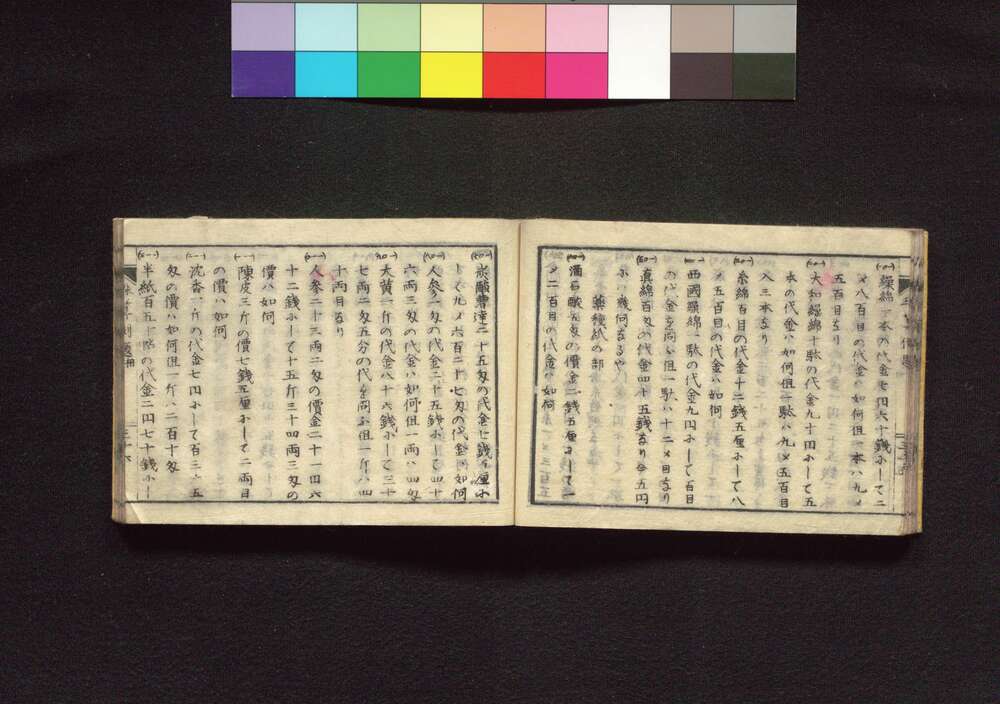 繰綿一本の代金七円六十銭ふして二
〆八百目の代金ハ如何但一本ハ九〆
五百目なり
大和繰綿十駄の代金九十円ふして五
本の代金ハ如何但一駄ハ九〆五百目
入三本なり
糸綿百目の代金十二銭五厘ふして八
〆五百目の代金ハ如何
西國繰綿一駄の代金九円ふして百目
の代金を問ふ但一駄ハ十二〆目なり
真綿百匁の代金四十五銭なり今五円
ふハ幾何なるや
薬種紙の部
酒石酸五匁の價金二銭五厘ふして一
〆二百目の代金ハ如何
炭酸曹達二十五匁の代金七銭五厘ふ
して九〆六百二十七匁の代金ハ如何
人參一匁の代金二十五銭ふして四十
六両三匁の代金ハ如何但一両ハ四匁
大黄一斤の代金八十六銭ふして三十
七両二匁五分の代金を問ふ但一斤ハ四
十両目なり
人參二十三両二匁の價金二十一円六
十二銭ふして十五斤三十四両三匁の
價ハ如何
陳皮三斤の價七銭五厘ふして二両目
の價ハ如何
沈香一斤の代金七円ふして百三十五
匁の價ハ如何但一斤ハ二百十匁
半紙百五十帖の代金二円七十銭ふし